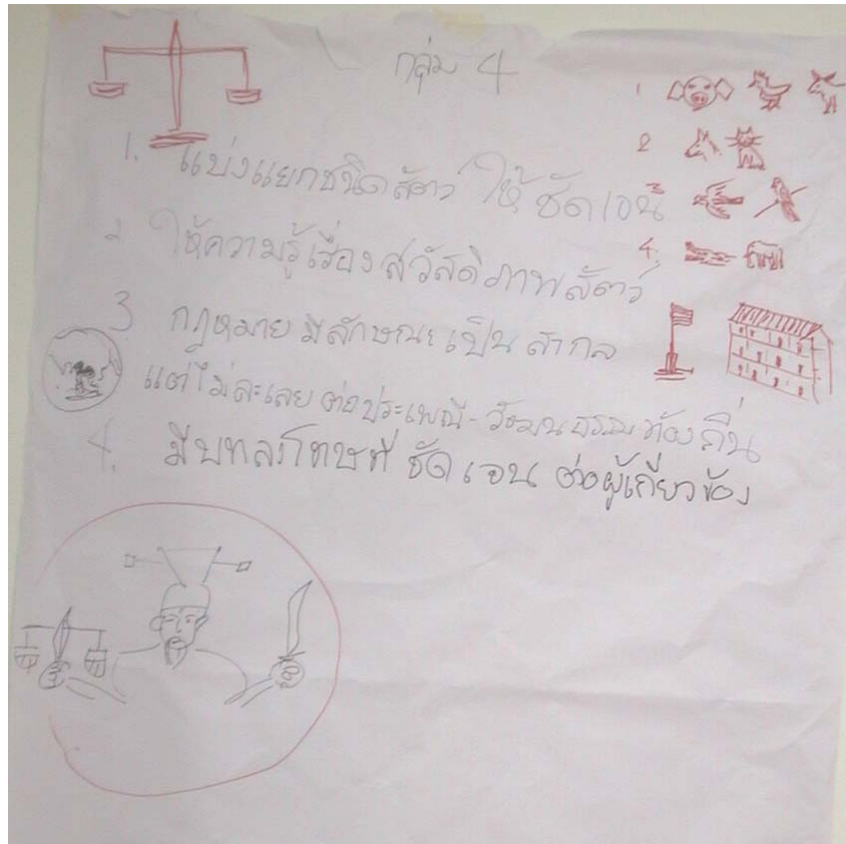 กลุ่ม 4
1. แบ่งแยกชนิดสัตว์ ให้ ชัดเจน
2 ให้ความรู้เรื่องสวัสดิภาพสัตว์
3 กฎหมาย มีลักษณะเป็น สากล
แต่ไม่ละเลย ต่อประเพณี - วัฒนธรรมท้องถิ่น
4. มีบทลงโทษที่ ชัดเจน ต่อผู้เกี่ยวข้อง
1
2
3
4.